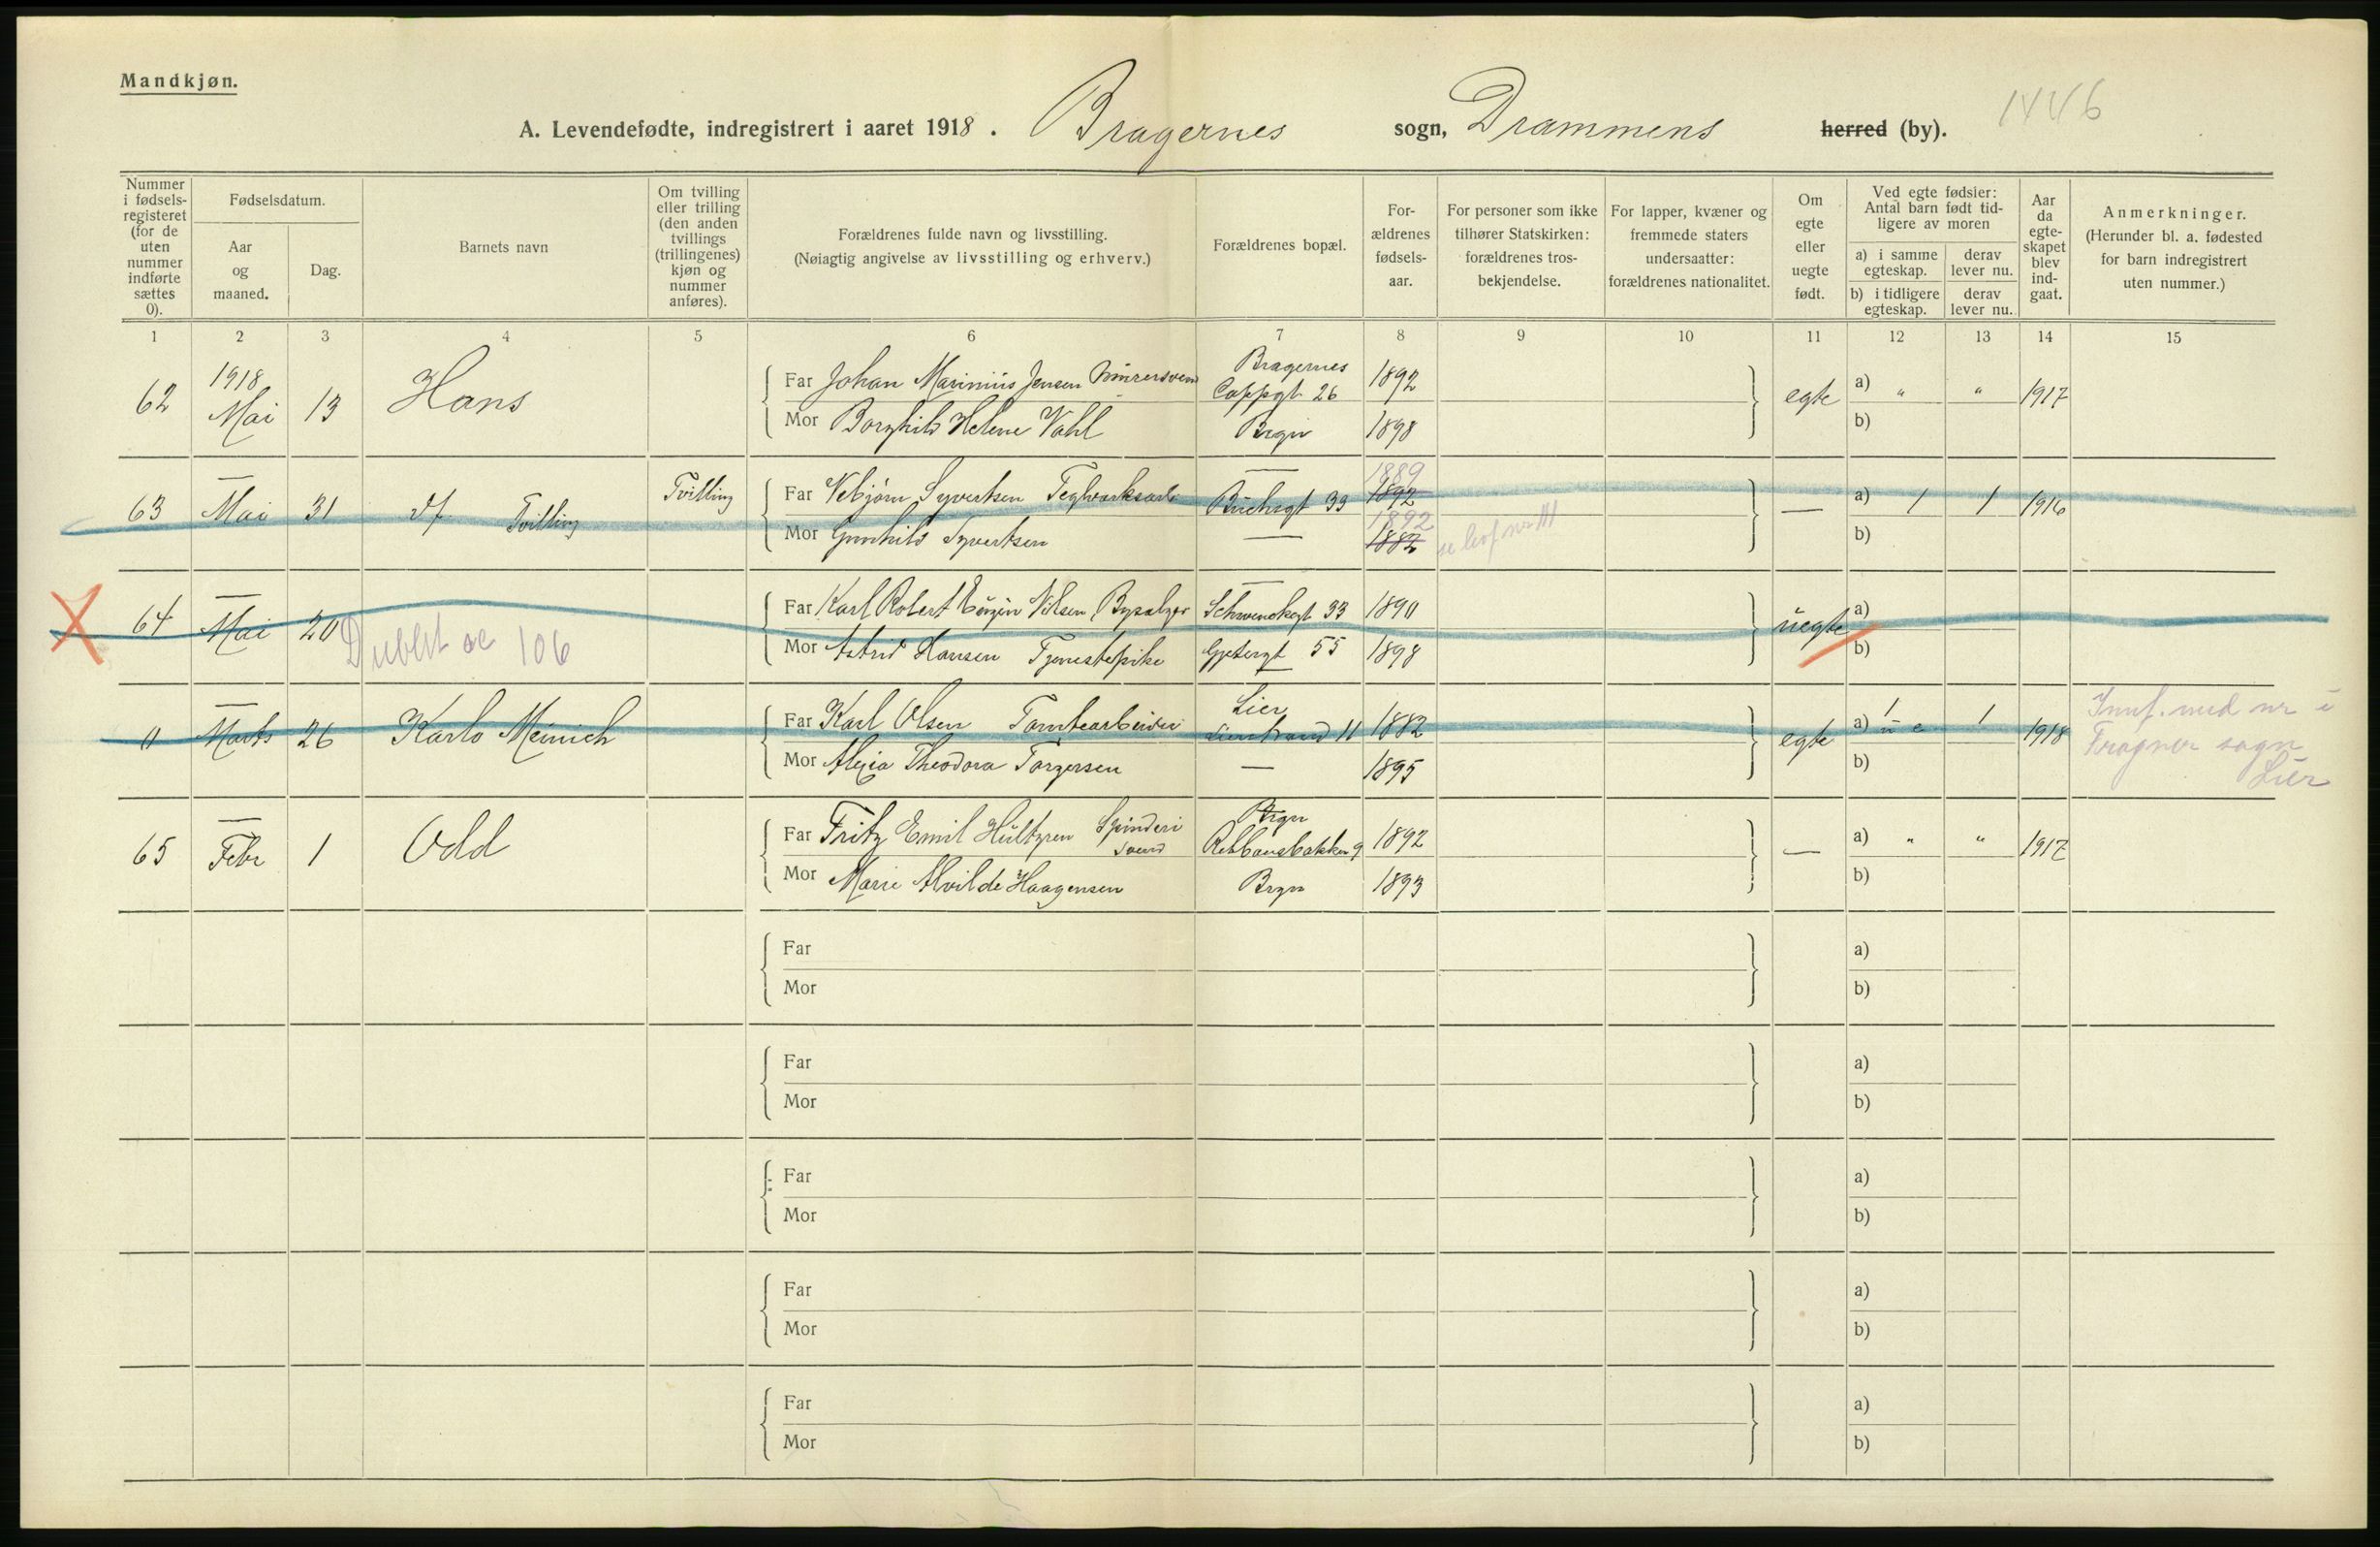 Mandkjøn.
1446
A. Levendefødte, indregistrert i aaret 1918. Bragernes sogn, Drammens herred (by).
Nummer i fødsels-registeret (for de uten nummer indførte sættes 0).
Fødselsdatum.
Aar og maaned.
Dag.
Barnets navn
Om tvilling eller trilling (den anden tvillings (trillingenes) kjøn og nummer anføres).
Forældrenes fulde navn og livsstilling.
(Nøiagtig angivelse av livsstilling og erhverv.)
Forældrenes bopæl.
For-ældrenes fødsels-aar.
For personer som ikke tilhører Statskirken: forældrenes tros-bekjendelse.
For lapper, kvæner og fremmede staters undersaatter: forældrenes nationalitet.
Om egte eller uegte født.
Ved egte fødsler: Antal barn født tid-ligere av moren
a) i samme egteskap.
derav lever nu.
b) i tidligere egteskap.
derav lever nu.
Aar da egte-skapet blev ind-gaat.
Anmerkninger.
(Herunder bl. a. fødested for barn indregistrert uten nummer.)
1 2 3 4 5 6 7 8 9 10 11 12 13 14 15
62 1918 Mai 13 Hans
Far Johan Marinius Jensen Murersvend Bragernes Cappgt 26 1892 egte a) " " 1917
Mor Borghild Helene Vahl Brgn 1898 b)
63 — Mai 31 Tvilling Tvilling
Far Vebjørn Syvertsen Teglverksarb — 33 1889 1892 — a) 1 1 1916
Mor Gunhild Syvertsen — 1892 1882 b)
64 — Mai 20 Dublet 106
Far Karl Robert Eugen Nilsen, — Schwenckegt 33 1890 uegte a)
Mor Astrid Hansen Tjenestepike Gjetergt 55 1898 b)
0 — Marts 26 Karlo Meinich
Far Karl Olsen Tomtearbeider Lier Lierstrand 11 1882 egte a) 1 1 1918 Innf. med nr i Frogner sogn Lier
Mor Alexia Theodora Torgersen — 1895 b)
65 — Febr 1 Odd
Far Fritz Emil Hultgren Spinderi svend Brgn Rebbansbakken 9 1892 — a) " " 1917
Mor Marie Alvilde Haagensen Brgn 1893 b)
Far a)
Mor b)
Far a)
Mor b)
Far a)
Mor b)
Far a)
Mor b)
Far a)
Mor b)